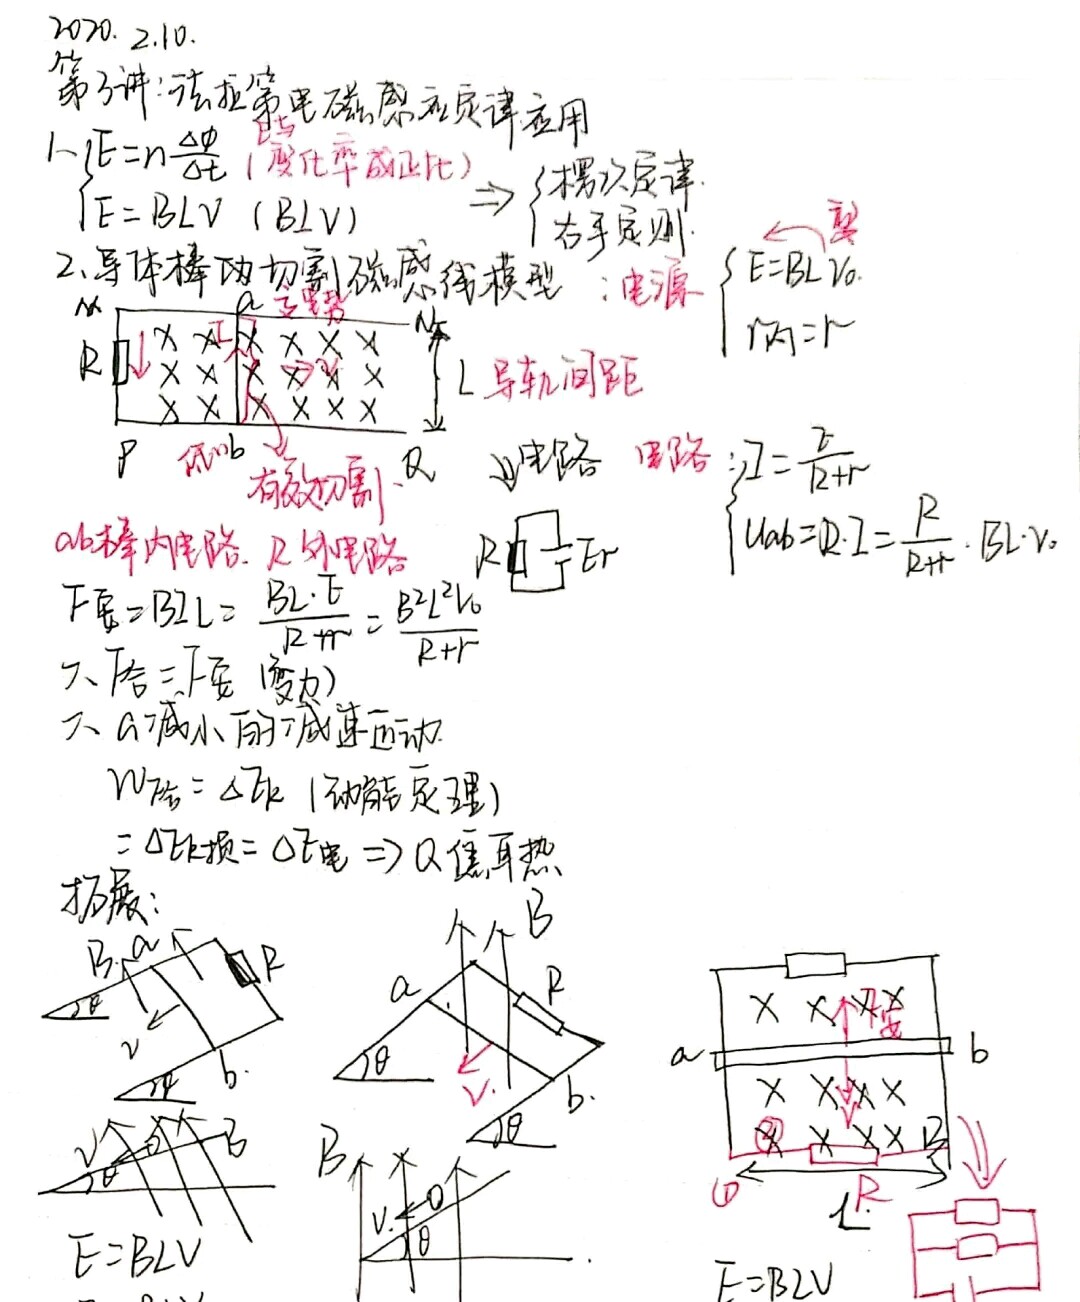 2020. 2.10.
第3讲:法拉第电磁感应定律应用
1、E=nΔφ/Δt (E与变化率成正比)
E=BLV (BLV)
⇒ 楞次定律.
右手定则.
2、导体棒切割磁感线模型:电源
E=BLv₀.
r内=r
M a N
R I v
L 导轨间距
P b Q
有效切割.
↓电路 电路:I=E/(R+r)
Uab=R·I=R/(R+r)·BL·v₀
ab棒内电路. R外电路
R E r
F安=BIL=BL·E/(R+r)=B²L²v₀/(R+r)
F合=F安 (变力)
a减小的减速运动.
W合=ΔEk (动能定理)
=ΔEk损=ΔE电⇒Q焦耳热
拓展:
B a R
θ v b.
θ
B
a R
θ v. b.
θ
F安
a b
R
L
V θ B
B V. θ
E=BLV
E=BLV